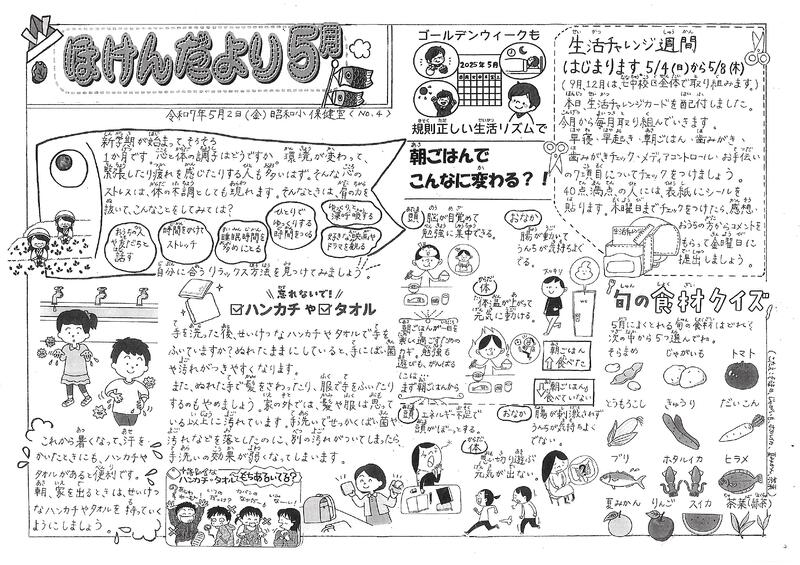 ほけんだより 5月
令和7年5月2日(金) 昭和小 保健室 (No.4)
新学期が始まって、そろそろ
1か月です。心と体の調子はどうですか。環境が変わって、
緊張したり疲れを感じたりする人も多いはず。そんな心の
ストレスは、体の不調としても現れます。そんなときは、肩の力を
抜いて、こんなことをしてみては?
おうちの人や友だちと話す
時間をかけてストレッチ
睡眠時間を多めにとる
ひとりでゆっくりする時間をつくる
ゆっくりと深呼吸する
好きな映画やドラマを観る
自分に合うリラックス方法を見つけてみましょう!
ゴールデンウィークも
2025年5月
規則正しい生活リズムで
朝ごはんで
こんなに変わる?!
頭
脳が目覚めて
勉強に集中できる。
おなか
腸が動いて
うんちが気持ちよく
でる。
体
体温が上がって
元気に動ける。
スッキリ
朝ごはんが一日を
楽しく過ごすための
カギ。勉強も
遊びも、がんばる
には、
まず朝ごはんから
朝ごはん
食べた
朝ごはん
食べていない
頭
エネルギー不足で
頭がぼーっとする。
おなか
腸が刺激されず
うんちが気持ちよく
でない。
体
思いっきり遊ぶ
元気が出ない。
生活チャレンジ週間
はじまります 5/4(日)から5/8(木)
(9月、12月は、七中校区全体で取り組みます。)
本日、生活チャレンジカードを配付しました。
今月から毎月取り組んでいきます。
早寝・早起き・朝ごはん・歯みがき・
歯みがきチェック・メディアコントロール・お手伝い
の7項目についてチェックをつけましょう。
40点満点の人には、表紙にシールを
貼ります。木曜日までチェックをつけたら、感想、
おうちの方からコメントを
もらって金曜日に
提出しましょう。
忘れないで!
ハンカチや タオル
手を洗った後、せいけつなハンカチやタオルで手を
ふいていますか?ぬれたままにしていると、手にばい菌
や汚れがつきやすくなります。
また、ぬれた手で髪をさわったり、服で手をふいたり
するのもやめましょう。家の外では、髪や服は思って
いる以上に汚れています。手洗いでせっかくばい菌や
汚れなどを落としたのに、別の汚れがついてしまったら
手洗いの効果が弱くなってしまいます。
これから暑くなって、汗を
かいたときにも、ハンカチや
タオルがあると便利です。
朝、家を出るときは、せいけつ
なハンカチやタオルを持っていく
ようにしましょう。
ハンカチ・タオル
旬の食材クイズ
5月によくとれる旬の食材はどれ?
次の中から5つ選んでね。
そらまめ じゃがいも トマト
とうもろこし きゅうり だいこん
ブリ ホタルイカ ヒラメ
夏みかん りんご スイカ 茶葉(緑茶)